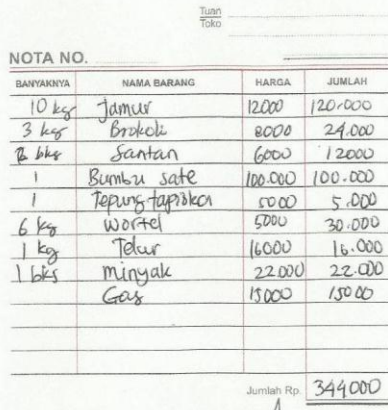 Tuan
Toko
NOTA NO.
BANYAKNYA NAMA BARANG HARGA JUMLAH
10 kg Jamur 12000 120.000
3 kg Brokoli 8000 24.000
2 bks Santan 6000 12000
1 Bumbu sate 100.000 100.000
1 Tepung tapioka 5000 5.000
6 kg Wortel 5000 30.000
1 kg Telur 16000 16.000
1 bks minyak 22000 22.000
Gas 15000 15000
Jumlah Rp. 344000